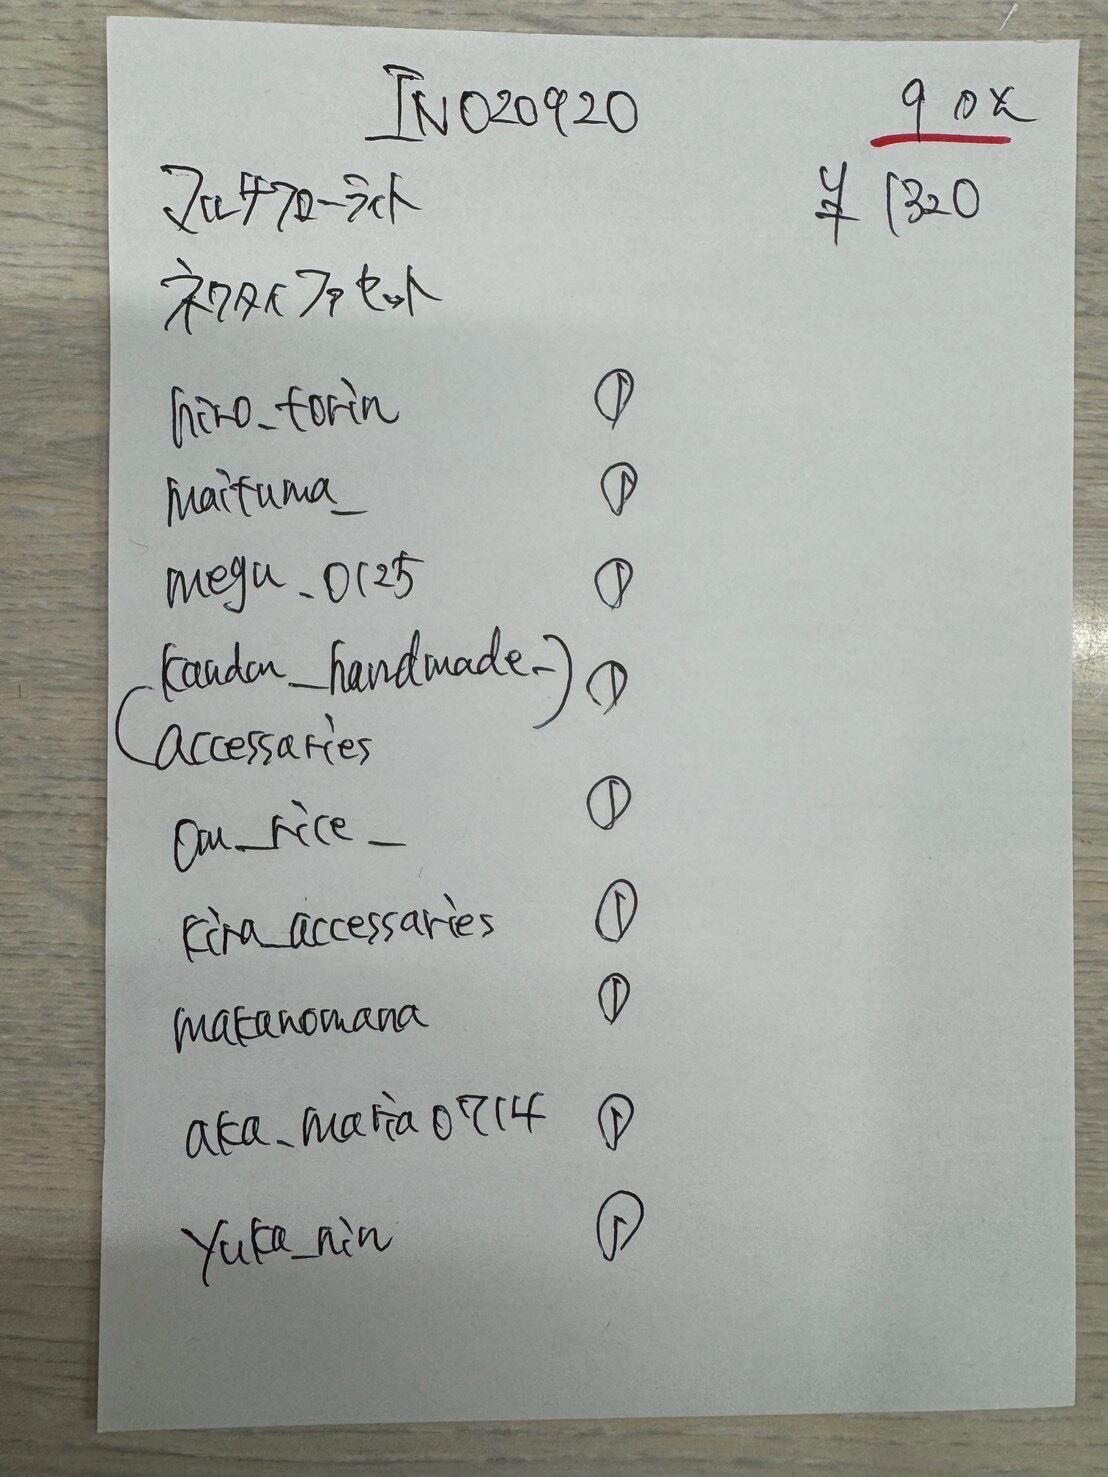 INO20920 9 点
マルチフローライト ¥ 1320
ネクタイファセット
hiro_torin ①
maituma_ ①
megu_0125 ①
(kandan_handmade_) ①
accessaries
om_rice_ ①
kira_accessaries ①
makanomana ①
aka_maria0714 ①
yuka_nin ①